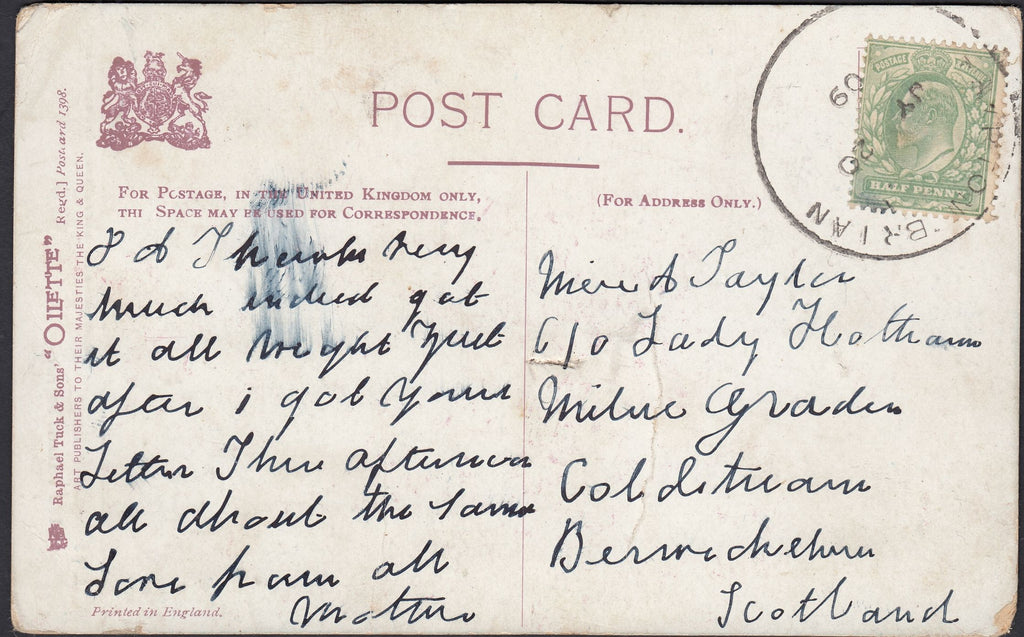 POST CARD.
FOR POSTAGE, IN THE UNITED KINGDOM ONLY,
THI SPACE MAY BE USED FOR CORRESPONDENCE.
(FOR ADDRESS ONLY.)
Raphael Tuck & Sons' "OILETTE" Regd.] Postcard 1398.
ART PUBLISHERS TO THEIR MAJESTIES THE KING & QUEEN.
POSTAGE
HALF PENNY
BRIAN
JY
20
09
Thanks very
much indeed got
it all wright Just
after i got your
Letter This afternoon
all about the same
Love from all
Mother
Miss A Taylor
C/o Lady Hotham
Milne Graden
Coldstream
Berwickshire
Scotland
Printed in England.